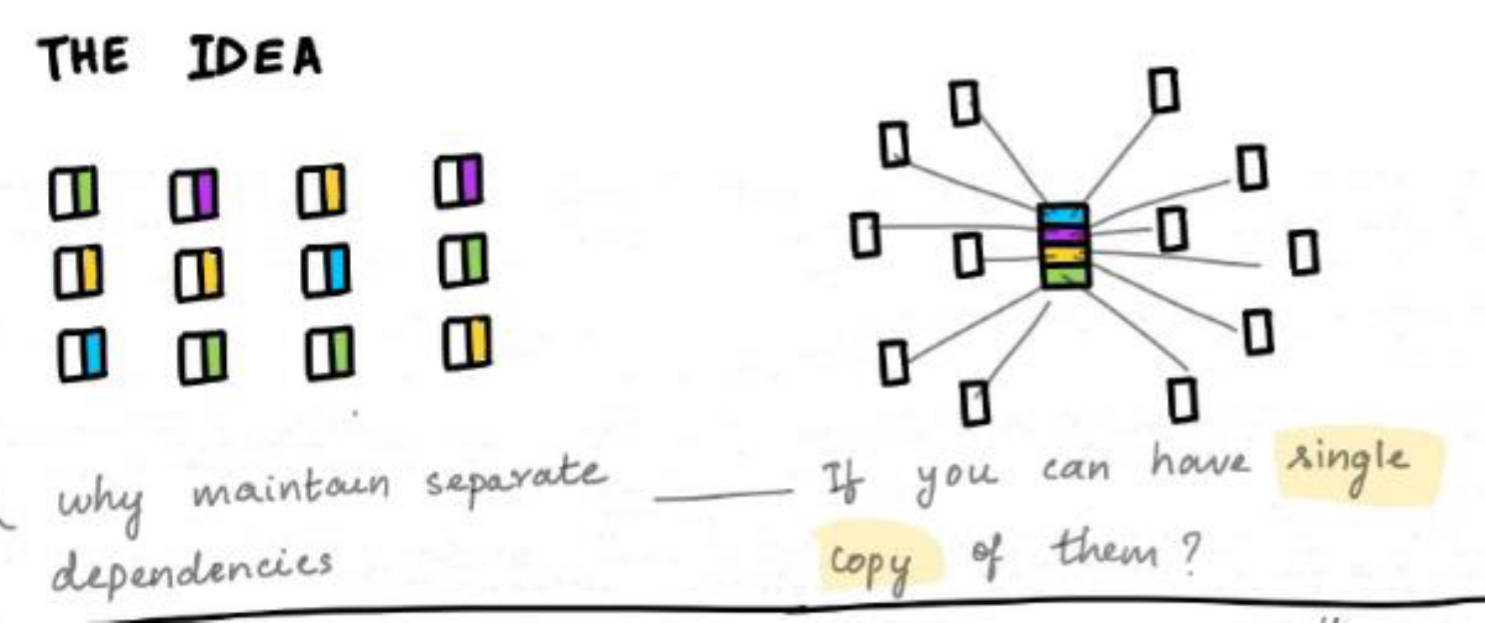 THE IDEA
why maintain separate
dependencies
If you can have single
copy of them?